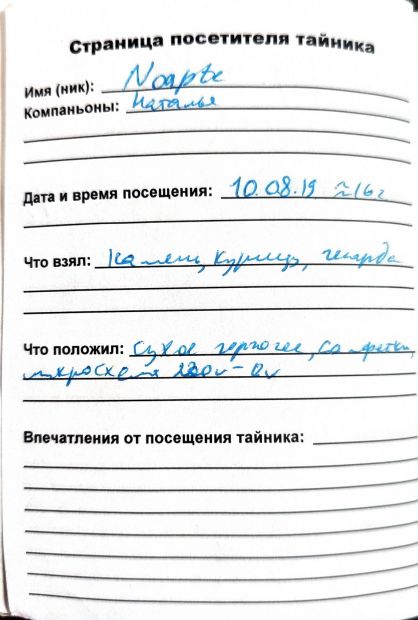 Страница посетителя тайника
Имя (ник): Noapte
Компаньоны: Наталья
Дата и время посещения: 10.08.19 ≈16
Что взял: Камень, курицу,
Что положил: Сухое горючее, салфетки,
микросхема
Впечатления от посещения тайника: